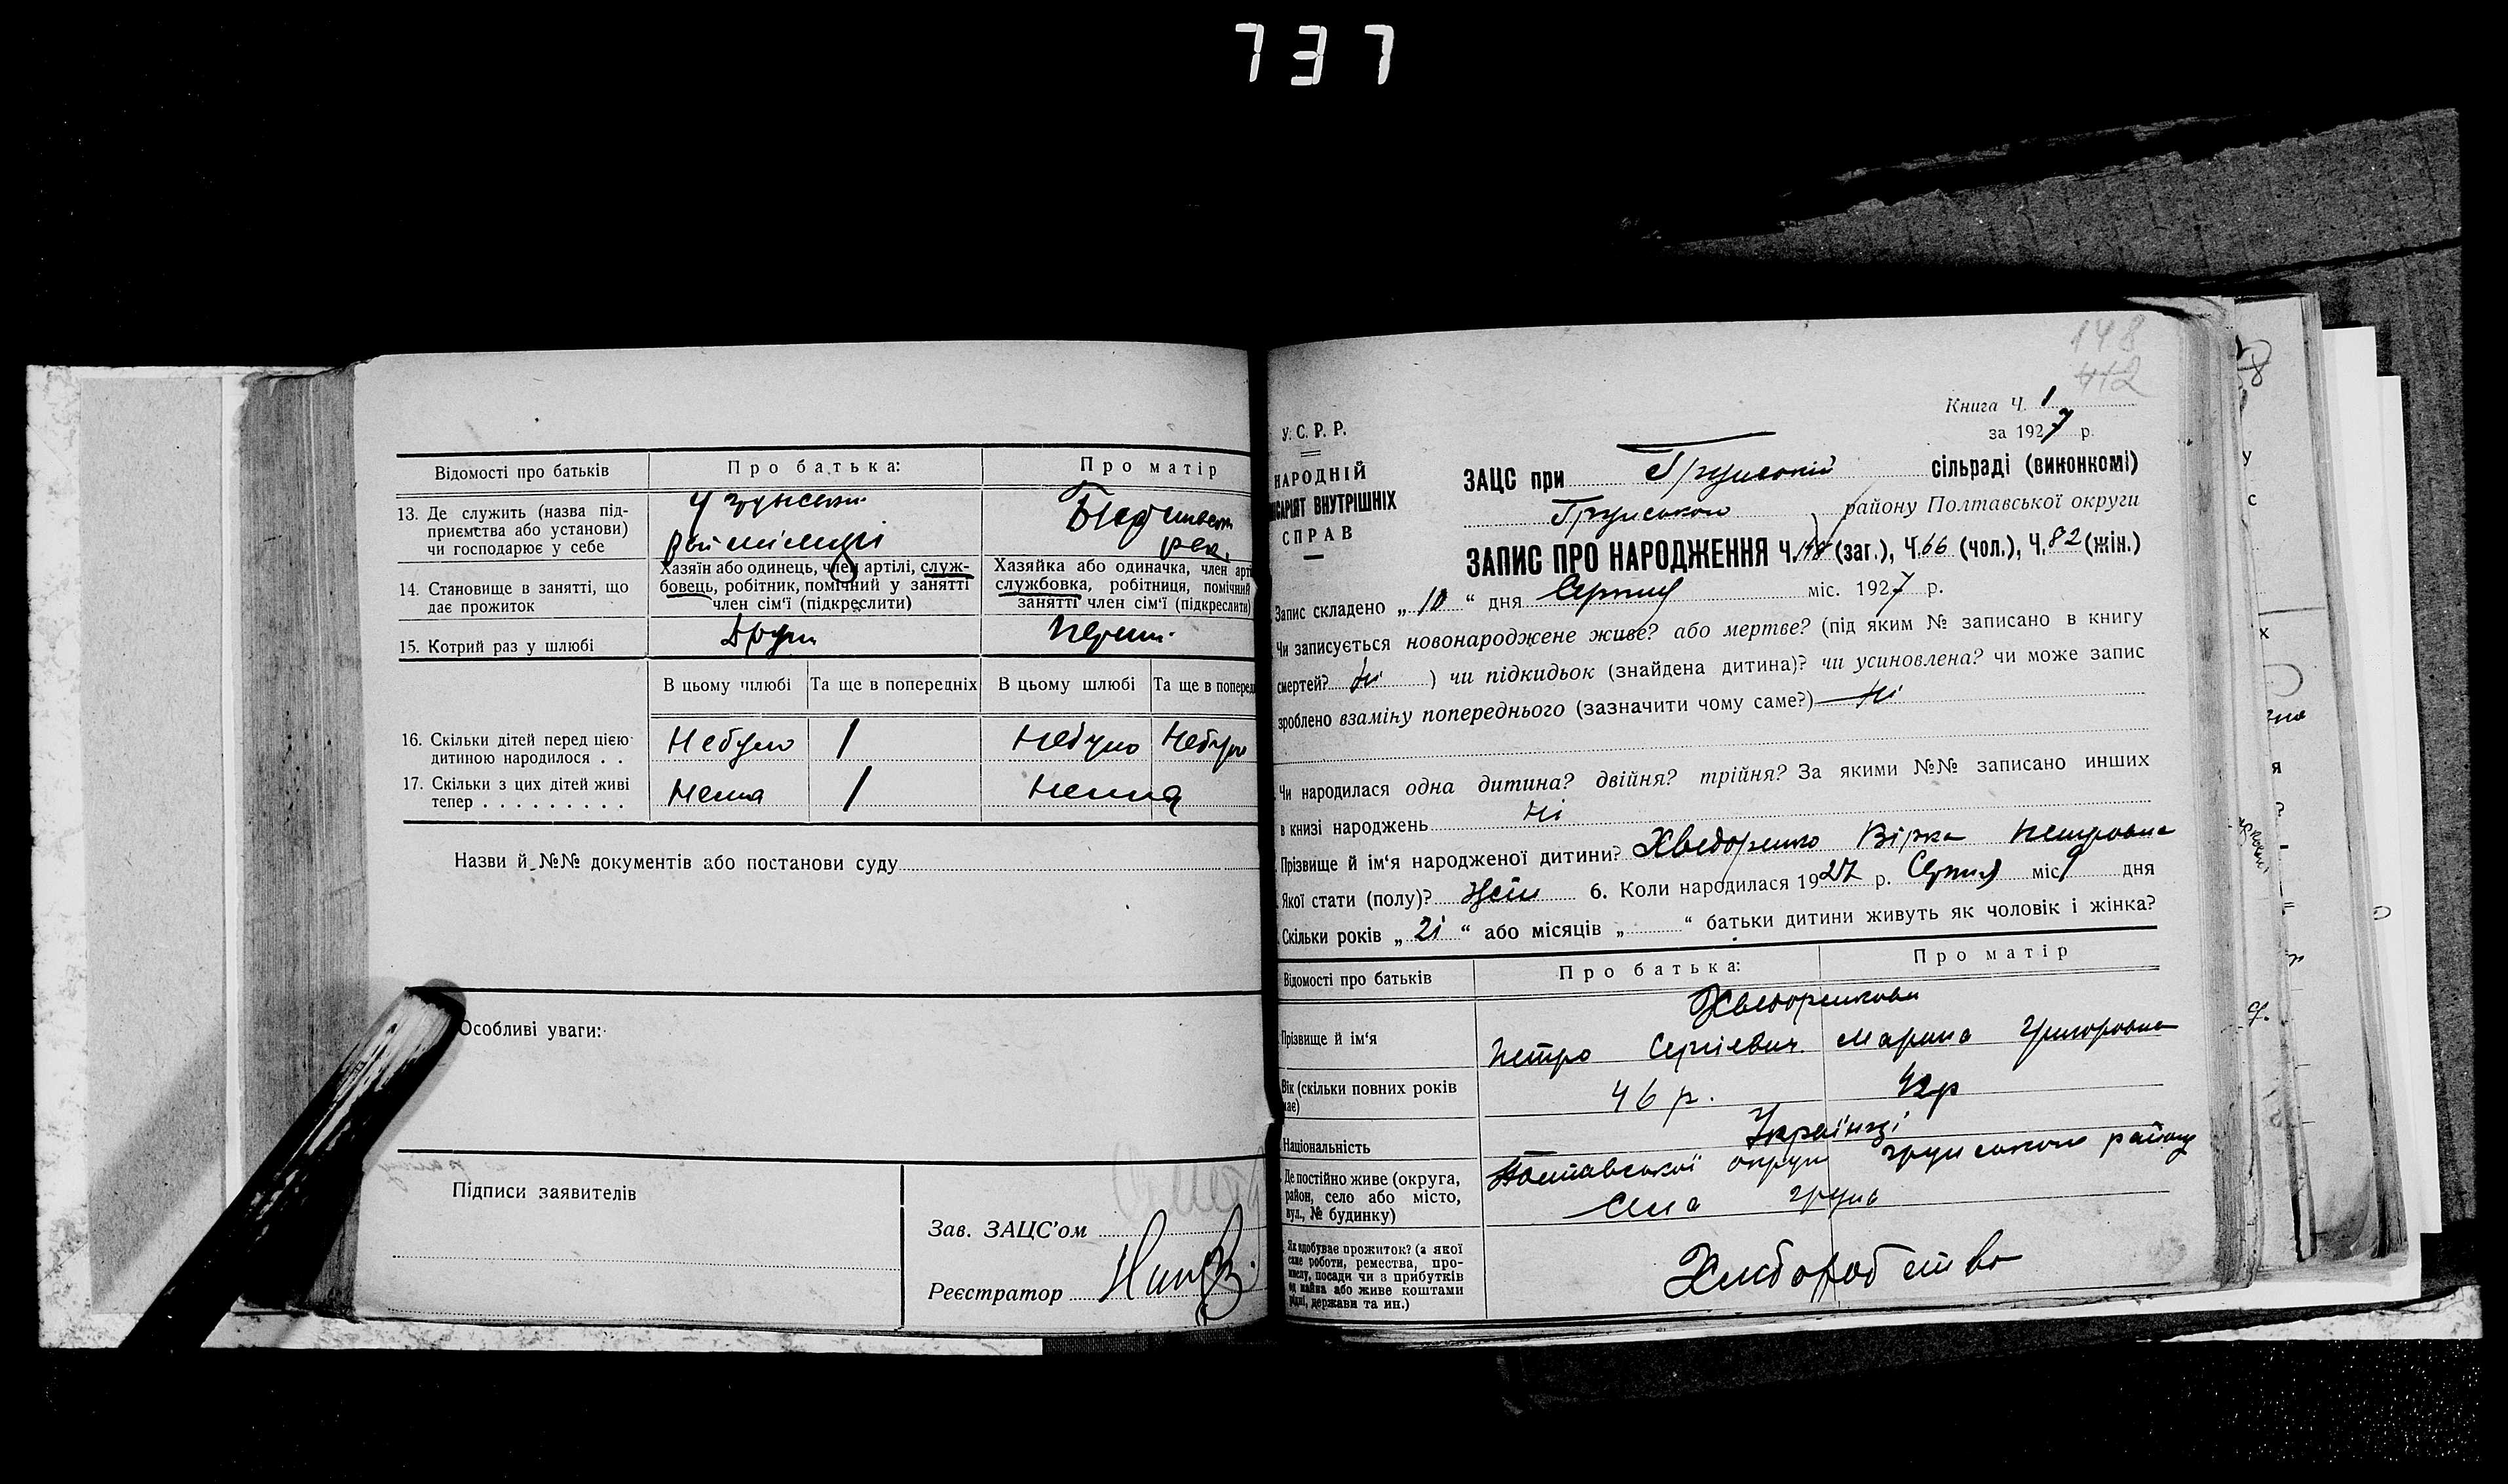 737
Відомості про батьків
Про батька:
Про матір
13. Де служить (назва під-
приємства або установи)
чи господарює у себе
рай міліції
14. Становище в занятті, що
дає прожиток
Хазяїн або одинець, член артілі, служ-
бовець, робітник, помічний у занятті
член сім'ї (підкреслити)
Хазяйка або одиначка, член арті
службовка, робітниця, помічний
занятті член сім'ї (підкреслити)
15. Котрий раз у шлюбі
Други
Перши
В цьому шлюбі
Та ще в попередніх
В цьому шлюбі
Та ще в поперед
16. Скільки дітей перед цією
дитиною народилося . .
Небуло
1
Небуло
Небуло
17. Скільки з цих дітей живі
тепер . . . . . . . . .
Нема
1
Нема
Назви й №№ документів або постанови суду
Особливі уваги:
Підписи заявителів
Зав. ЗАЦС'ом
Реєстратор
148
412
Книга Ч. 1
за 1927 р.
У. С. Р. Р.
НАРОДНІЙ
ІСАРІЯТ ВНУТРІШНІХ
СПРАВ
ЗАЦС при Грунській сільраді (виконкомі)
Грунського району Полтавської округи
ЗАПИС ПРО НАРОДЖЕННЯ Ч. 148 (заг.), Ч. 66 (чол.), Ч. 82 (жін.)
Запис складено „ 10 “ дня Серпня міс. 1927 р.
Чи записується новонароджене живе? або мертве? (під яким № записано в книгу
смертей? Ні ) чи підкидьок (знайдена дитина)? чи усиновлена? чи може запис
зроблено взаміну попереднього (зазначити чому саме?) Ні
Чи народилася одна дитина? двійня? трійня? За якими №№ записано инших
в книзі народжень Ні
Прізвище й ім'я народженої дитини? Хведоренко Вірка Петровна
Якої стати (полу)? Жін 6. Коли народилася 1927 р. Серпня міс 9 дня
Скільки років „ 2і “ або місяців „ “ батьки дитини живуть як чоловік і жінка?
Відомості про батьків
Про батька:
Про матір
Хведоренкови
Прізвище й ім'я
Петро Сергієвич
Марина Григоровна
Вік (скільки повних років
має)
46 р.
42р
Національність
Українці
Де постійно живе (округа,
район, село або місто,
вул., № будинку)
Полтавської округи Грунського району
Села Грунь
Як здобуває прожиток? (з якої
саме роботи, ремества, про-
мислу, посади чи з прибутків
од майна або живе коштами
рідні, держави та ин.)
Хлиборобство